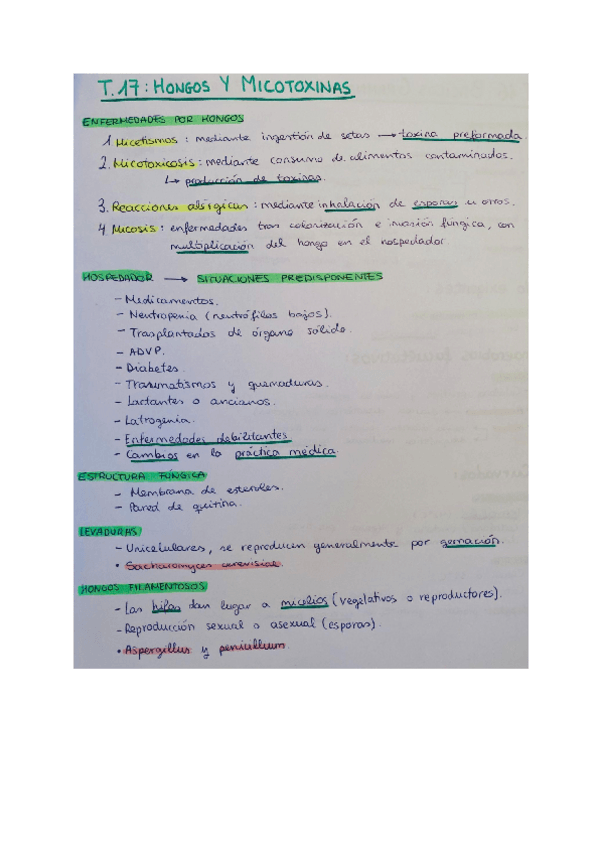 T.17: HONGOS Y MICOTOXINAS
ENFERMEDADES POR HONGOS
1. Micetismos: mediante ingestión de setas → toxina preformada.
2. Micotoxicosis: mediante consumo de alimentos contaminados.
↳ producción de toxinas.
3. Reacciones alérgicas: mediante inhalación de esporas u otros.
4. Micosis: enfermedades tras colonización e invasión fúngica, con
multiplicación del hongo en el hospedador.
HOSPEDADOR → SITUACIONES PREDISPONENTES
- Medicamentos.
- Neutropenia (neutrófilos bajos).
- Trasplantados de órgano sólido.
- ADVP.
- Diabetes.
- Traumatismos y quemaduras.
- Lactantes o ancianos.
- Iatrogenia.
- Enfermedades debilitantes
- Cambios en la práctica médica.
ESTRUCTURA FÚNGICA
- Membrana de esteroles.
- Pared de quitina.
LEVADURAS
- Unicelulares, se reproducen generalmente por gemación.
• Saccharomyces cerevisiae.
HONGOS FILAMENTOSOS
- Las hifas dan lugar a micelios (vegetativos o reproductores).
- Reproducción sexual o asexual (esporas).
• Aspergillus y penicillium.